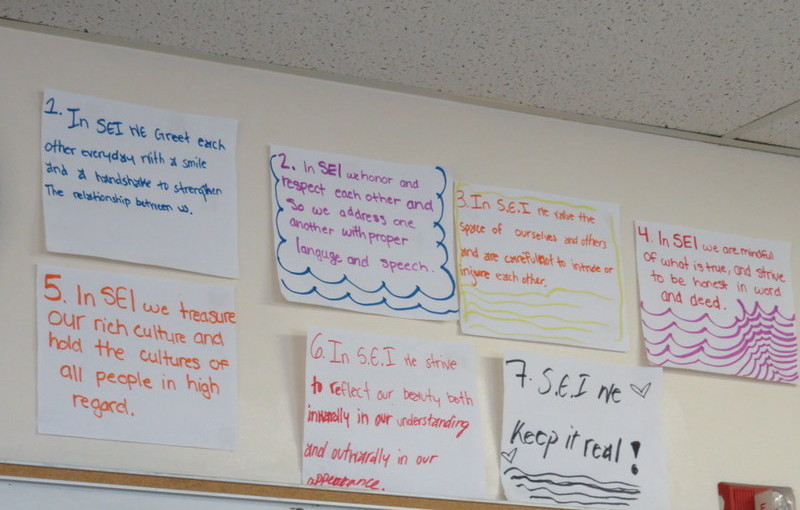 1. In SEI we Greet each
other everyday with a smile
and a handshake to strengthen
The relationship between us.
2. In SEI we honor and
respect each other and
So we address one
another with proper
languge and speech.
3. In S.E.I we value the
space of ourselves and others
and are careful not to intrude or
injure each other.
4. In SEI we are mindful
of what is true, and strive
to be honest in word
and deed.
5. In SEI we treasure
our rich culture and
hold the cultures of
all people in high
regard.
6. In S.E.I we strive
to reflect our beauty both
internally in our understanding
and outwardly in our
appearance.
7. S.E.I we
Keep it real!